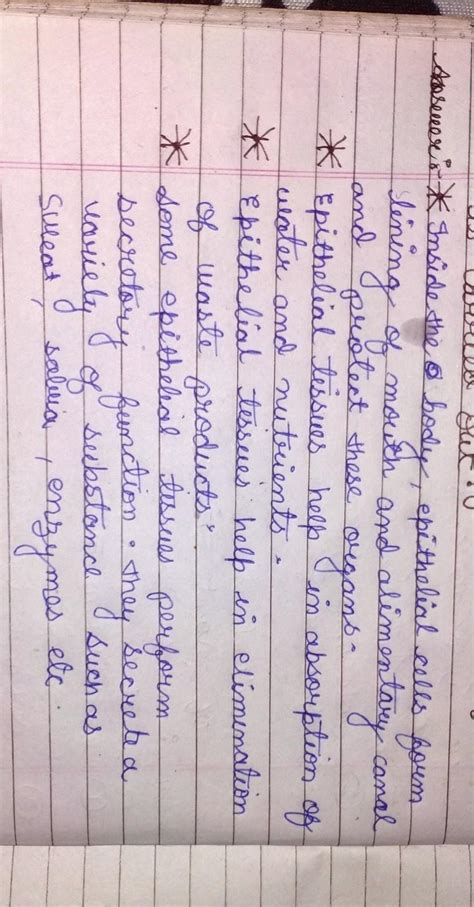 Answer:- * Inside the body, epithelial cells form
lining of mouth and alimentary canal
and protect these organs.
* Epithelial tissues help in absorption of
water and nutrients.
* Epithelial tissues help in elimination
of waste products.
* Some epithelial tissues perform
secretory function. They secrete a
variety of substance such as
Sweat, saliva, enzymes etc